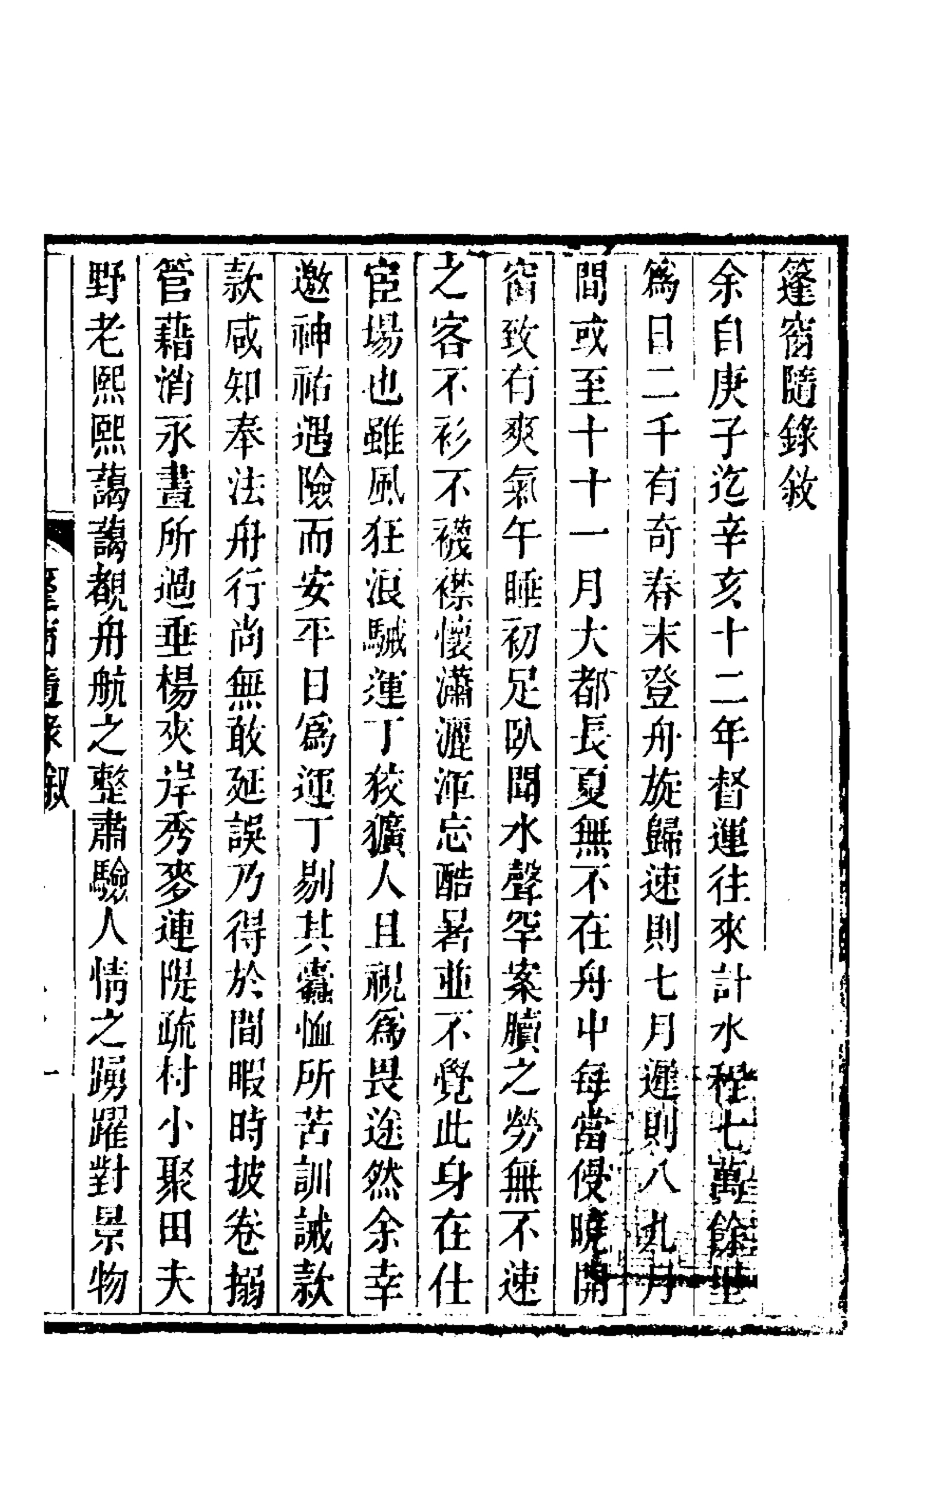 篷窗隨錄敘
余自庚子迄辛亥十二年督運往來計水程七萬餘里
為日二千有奇春末登舟旋歸速則七月遲則八九月
間或至十十一月大都長夏無不在舟中每當侵曉開
窗致有爽氣午睡初足臥聞水聲罕案牘之勞無不速
之客不衫不襪襟懷瀟灑渾忘酷暑並不覺此身在仕
宦場也雖風狂浪駭運丁狡獷人且視為畏途然余幸
邀神祐遇險而安平日為運丁剔其蠹恤所苦訓誡款
款咸知奉法舟行尚無敢延誤乃得於間暇時披卷搦
管藉消永晝所過垂楊夾岸秀麥連隄疏村小聚田夫
野老熙熙藹藹覩舟航之整肅驗人情之踴躍對景物
篷窗隨錄 敘
一